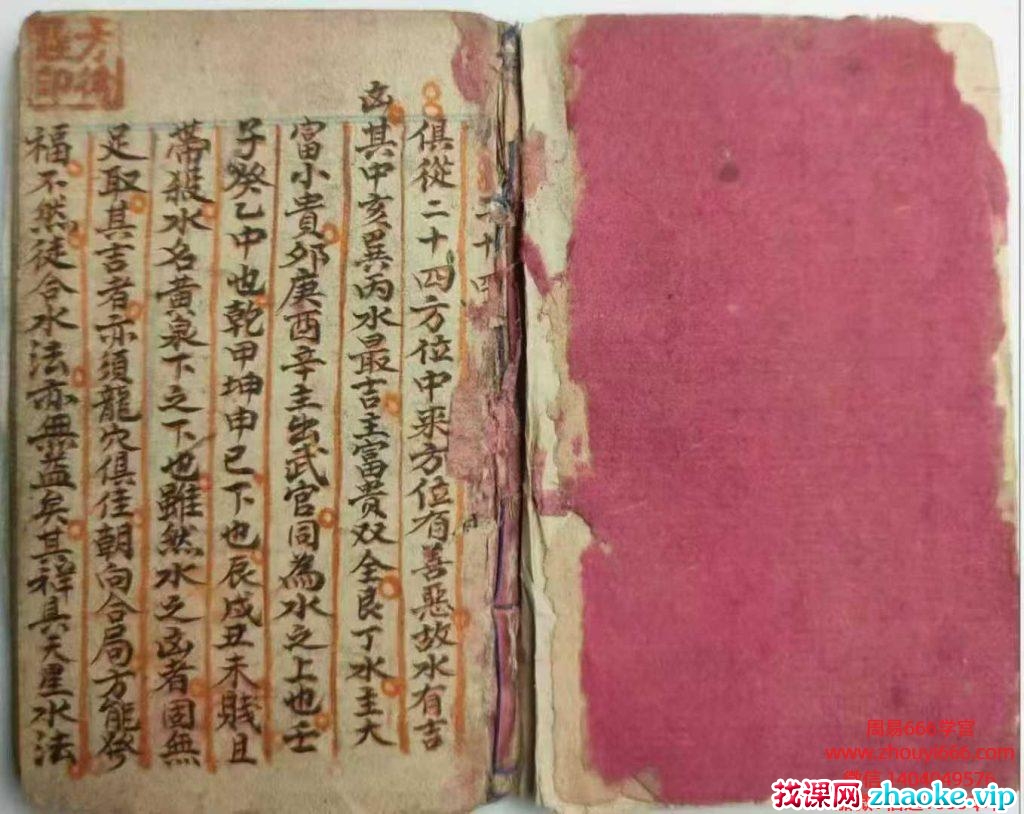 二十四
俱從二十四方位中来方位有善惡故水有吉
凶其中亥巽丙水最吉主富貴双全艮丁水主大
富小貴夘庚酉辛主出武官同為水之上也壬
子癸乙中也乾甲坤申巳下也辰戌丑未賤且
帶殺水名黃泉下之下也雖然水之凶者固無
足取其吉者亦須龍穴俱佳朝向合局方能發
福不然徒合水法亦無益矣其禆具天星水法
周易666学官
www.zhouyi666.com
找课网zhaoke.vip